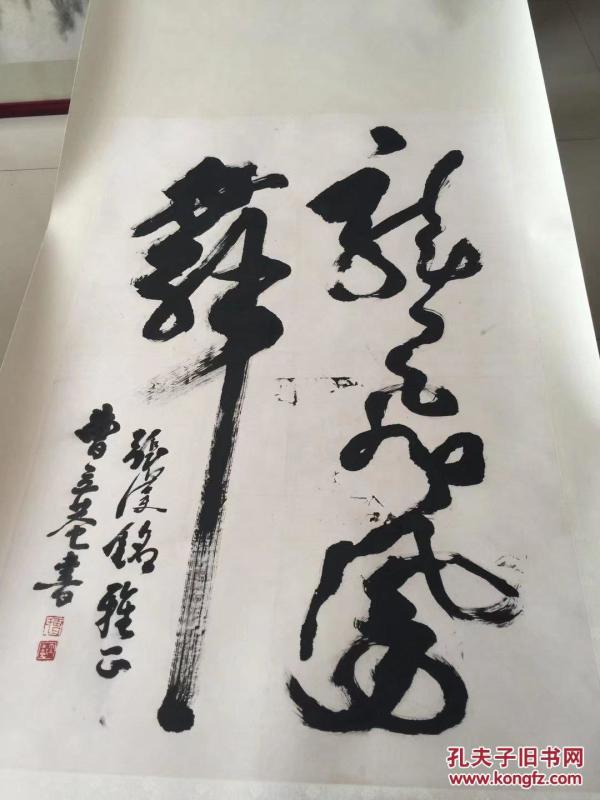 龍飛鳳
舞
張俊銘雅正
曹立菴書
孔夫子旧书网
www.kongfz.com